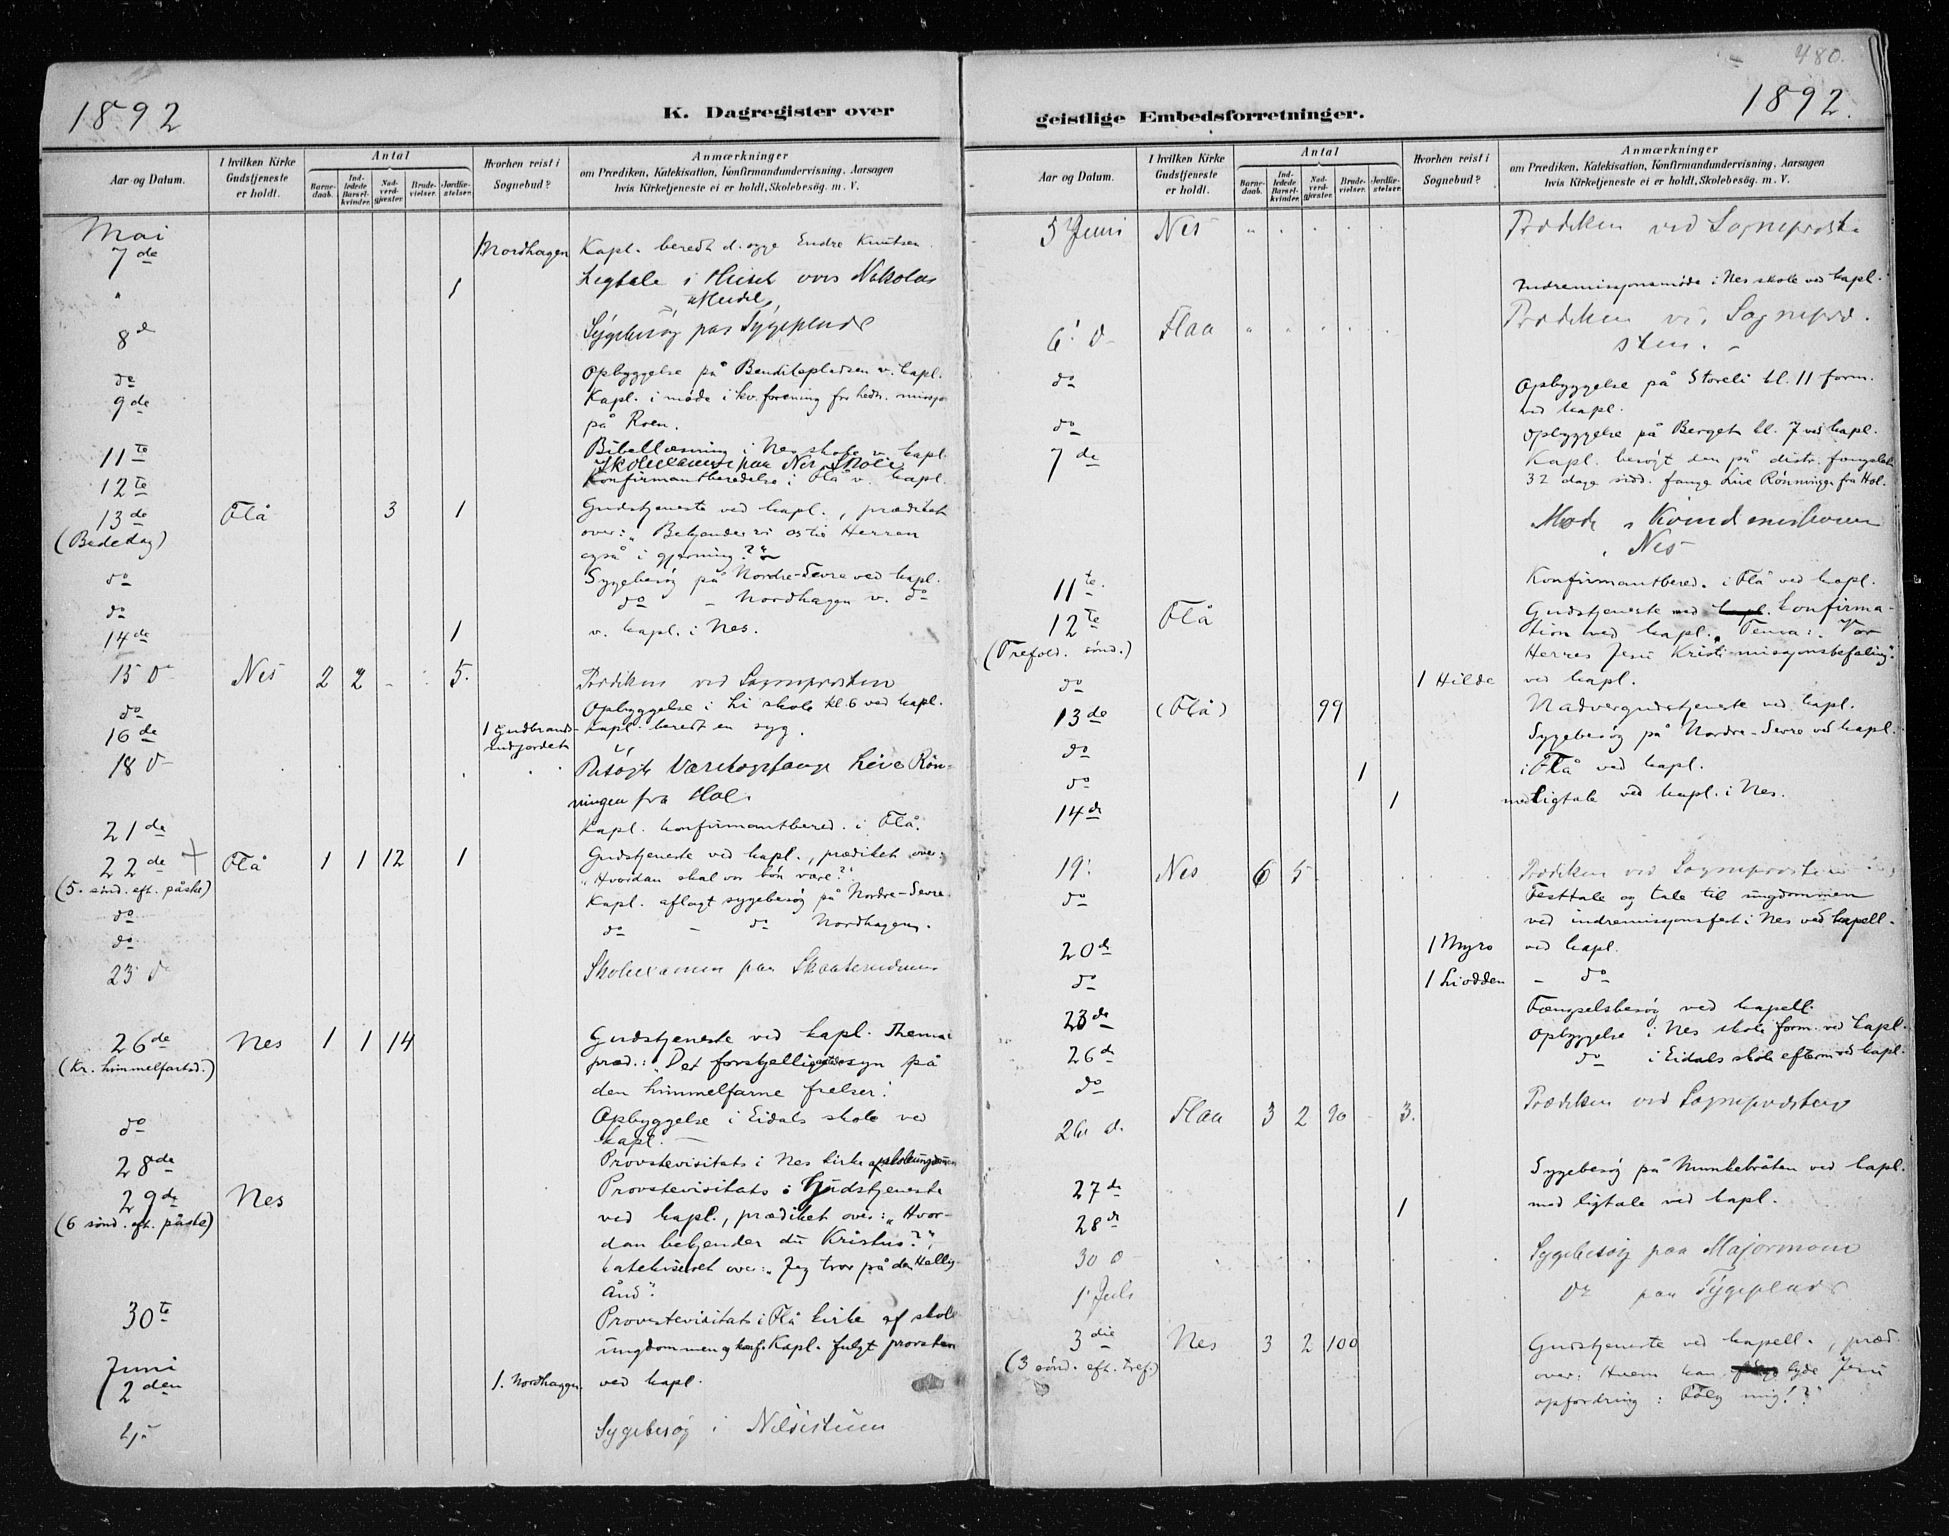 480.
1892
K. Dagregister over
Aar og Datum.
I hvilken Kirke Gudstjeneste er holdt.
Antal
Barnedaab.
Indledede Barselkvinder.
Nadverdgjæster.
Brudevielser.
Jordfæstelser.
Hvorhen reist i Sognebud?
Anmærkninger
om Prædiken, Katekisation, Konfirmandundervisning. Aarsagen
hvis Kirketjeneste ei er holdt, Skolebesøg. m. V.
Mai
7de 1 Nordhagen Kapl. beredt d. syge Endre Knutsen.
" 1 Ligtale i Huset over Nikolai
8d Sygebesøg paa Sygeplads
do Opbyggelse på v. kapl.
9de Kapl. i møde i kv.forening for hedn. missjo
på Roen.
11te Bibellæsning i Nes skole v. kapl.
Skoleexamen paa Nes Skole
12te Konfirmantberedelse i Flå v. kapl.
13de Flå 3 1 Gudstjeneste ved kapl., prædiket
(Bededag) over: „Bekjender vi os til Herren
også i gjerning?“
do Sygebesøg på Nordre-Sevre ved kapl.
do do – Nordhagen v. do
14de 1 v. kapl. i Nes.
15 d Nes 2 2 - 5. Prædiken ved Sogneprosten
do Opbyggelse i Li skole kl. 6 ved kapl.
16de 1 Gudbrandsudjordet kapl. beredt en syg.
18 d Besøgte Varetægtsfange Live Røn-
ningen fra Hol.
21de Kapl. konfirmantbered. i Flå.
22de Flå 1 1 12 1 Gudstjeneste ved kapl., prædiket over:
(5. sønd. eft. påske) „Hvordan skal vor bøn være?“
do Kapl. aflagt sygebesøg på Nordre-Sevre.
do do – do Nordhagen.
23 d Skoleexamen paa
26de Nes 1 1 14 Gudstjeneste ved kapl. Thema
(Kr. himmelfartsd.) præd.: „Det forskjellige syn på
den himmelfarne frelser.“
do Opbyggelse i Eidals skole ved
kapl.
28de Provstevisitats i Nes kirke af skoleungdommen
29de Nes Provstevisitats: Gudstjeneste
(6 sønd. eft. påske) ved kapl., prædiket over: „Hvor-
dan bekjender du Kristus?“,
katekiseret over: „Jeg tror på den Hellig-
Ånd“.
30te Provstevisitats i Flå kirke af skole
ungdommen og konf. Kapl. fulgt provsten
Juni
2den 1. Nordhagen ved kapl.
4de Sygebesøg i
1892.
geistlige Embedsforretninger.
Aar og Datum.
I hvilken Kirke Gudstjeneste er holdt.
Antal
Barnedaab.
Indledede Barselkvinder.
Nadverdgjæster.
Brudevielser.
Jordfæstelser.
Hvorhen reist i Sognebud?
Anmærkninger
om Prædiken, Katekisation, Konfirmandundervisning. Aarsagen
hvis Kirketjeneste ei er holdt, Skolebesøg. m. V.
5 Juni Nes " . . . . Prædiken ved Sogneprosten
Indremissjonsmøde i Nes skole ved kapl.
6' d Flaa " " . . . Prædiken ved Sognepro-
sten. –
do Opbyggelse på Storeli kl. 11 form.
ved kapl.
do Opbyggelse på Berget kl. 7 ved kapl.
7de Kapl. besøgt den på distr. fængslet
32 dage sidd. fange Live Rønningen fra Hol.
Møde i Kvindemissionen
i Nes
11te. Konfirmantbered. i Flå ved kapl.
12te Flå Gudstjeneste med kapl. konfirma-
(Trefold. sønd.) tion ved kapl. Tema: „Vor
Herres Jesu Kristi missjonsbefaling“.
do 1 Hilde ved kapl.
13de (Flå) 99 Nadvergudstjeneste ved kapl.
do Sygebesøg på Nordre-Sevre ved kapl.
do 1 i Flå ved kapl.
14de 1 med ligtale ved kapl. i Nes.
19. Nes 6 5 Prædiken ved Sogneprosten
do Festtale og tale til ungdommen
ved indremissjonsfest i Nes ved kapell.
20de 1 Myro ved kapl.
do 1 Liodden – do
23de Fængselsbesøg ved kapell.
26de Opbyggelse i Nes skole form. ved kapl.
do do i Eidals skole efterm. ved kapl.
26 d. Flaa 3 2 90 - 3. Prædiken ved Sogneprosten
27de Sygebesøg på Munkebråten ved kapl.
28de 1 med ligtale ved kapl.
30 d Sygebesøg paa Majormoen
1' Juli do paa Sygeplads
3die Nes 3 2 100 Gudstjeneste ved kapell., præd.
(3 sønd. eft. tref.) over: Hvem kan lyde Jesu
opfordring: Følg mig!?“